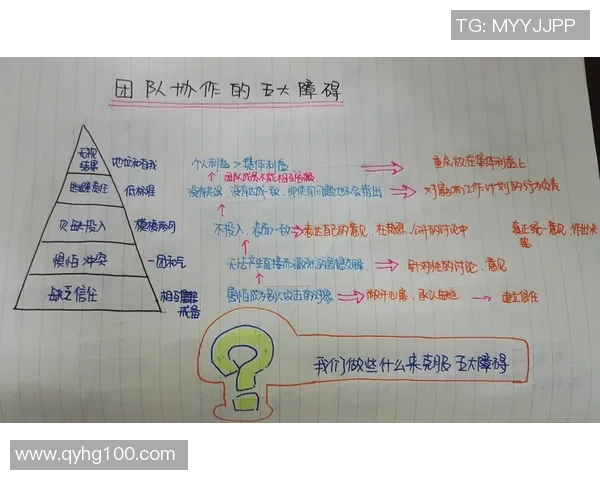 TG: MYYJJPP
团队协作的五大障碍
无视
结果
地位和自我
个人利益 > 集体利益
重点放在集体利益上
逃避责任
低标准
团队成员不能相互
没有共识,没有达成一致,即使有问题也不会指出
对影响工作计划的行为负责
欠缺投入
模棱两可
不投入,表面一致
表达自己的意见,在热烈、公开的讨论中
真正统一意见,作出决策
惧怕冲突
一团和气
无法产生直接而激烈的思想交锋
针对性的讨论、意见
缺乏信任
相互
戒备
害怕成为别人攻击的对象
敞开心扉,承认
建立信任
我们做些什么来克服五大障碍
www.qyhg100.com